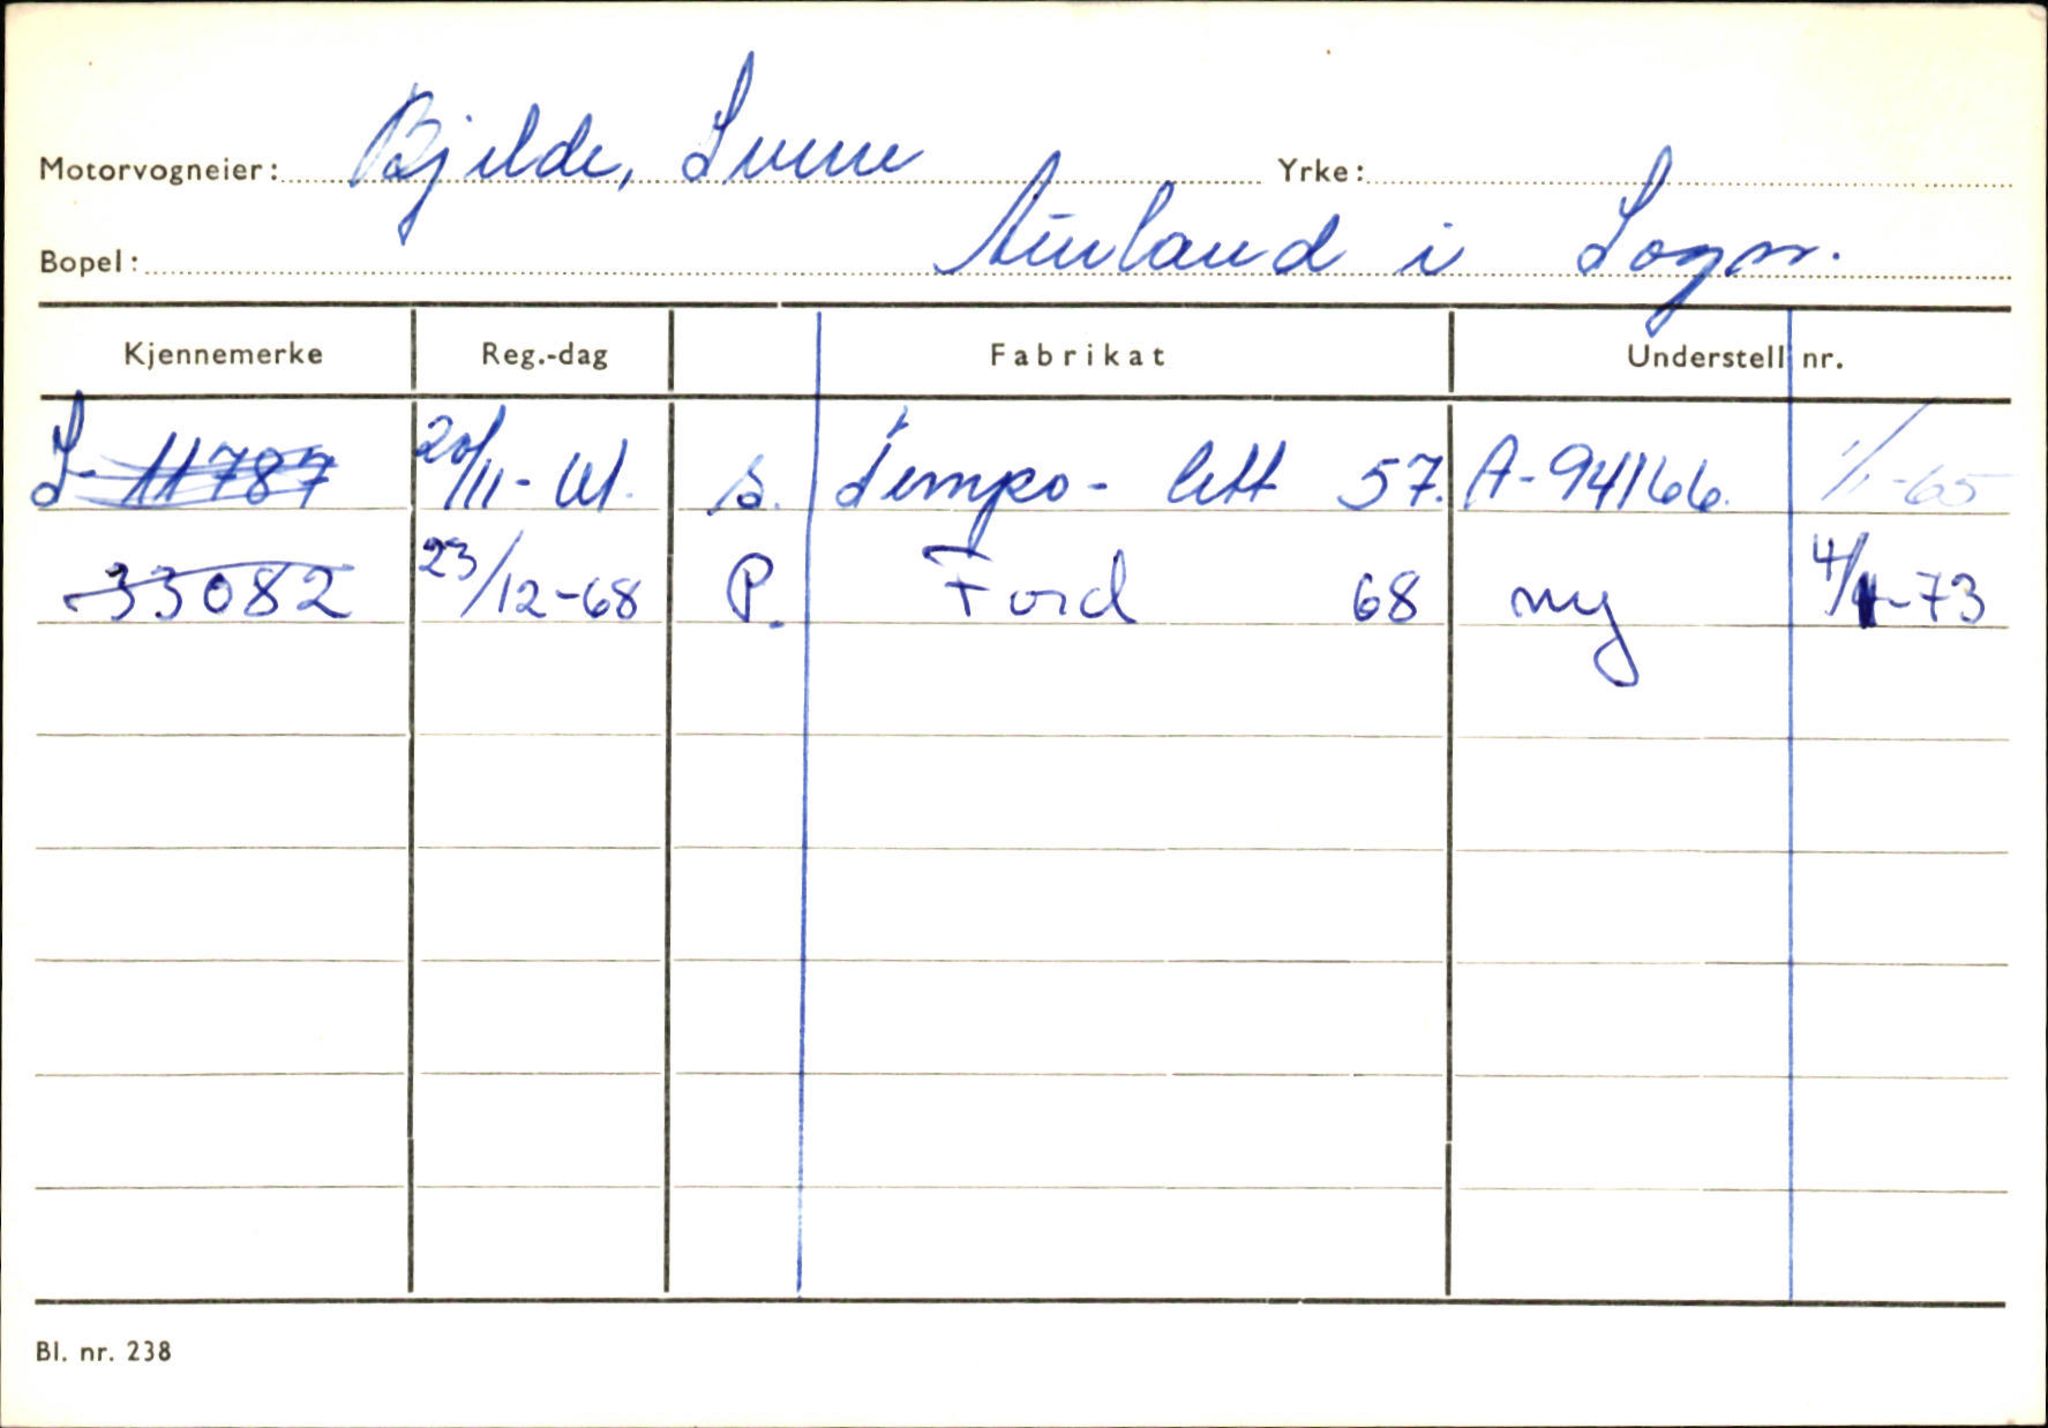 Motorvogneier: Bjelde, Sverre Yrke:
Bopel: Aurland i Sogn.
Kjennemerke Reg.-dag Fabrikat Understell nr.
S-11787 20/11-61. s. Tempo-lett 57. A-94166. 1/1-65
33082 23/12-68 P. Ford 68 ny 4/4-73
Bl. nr. 238